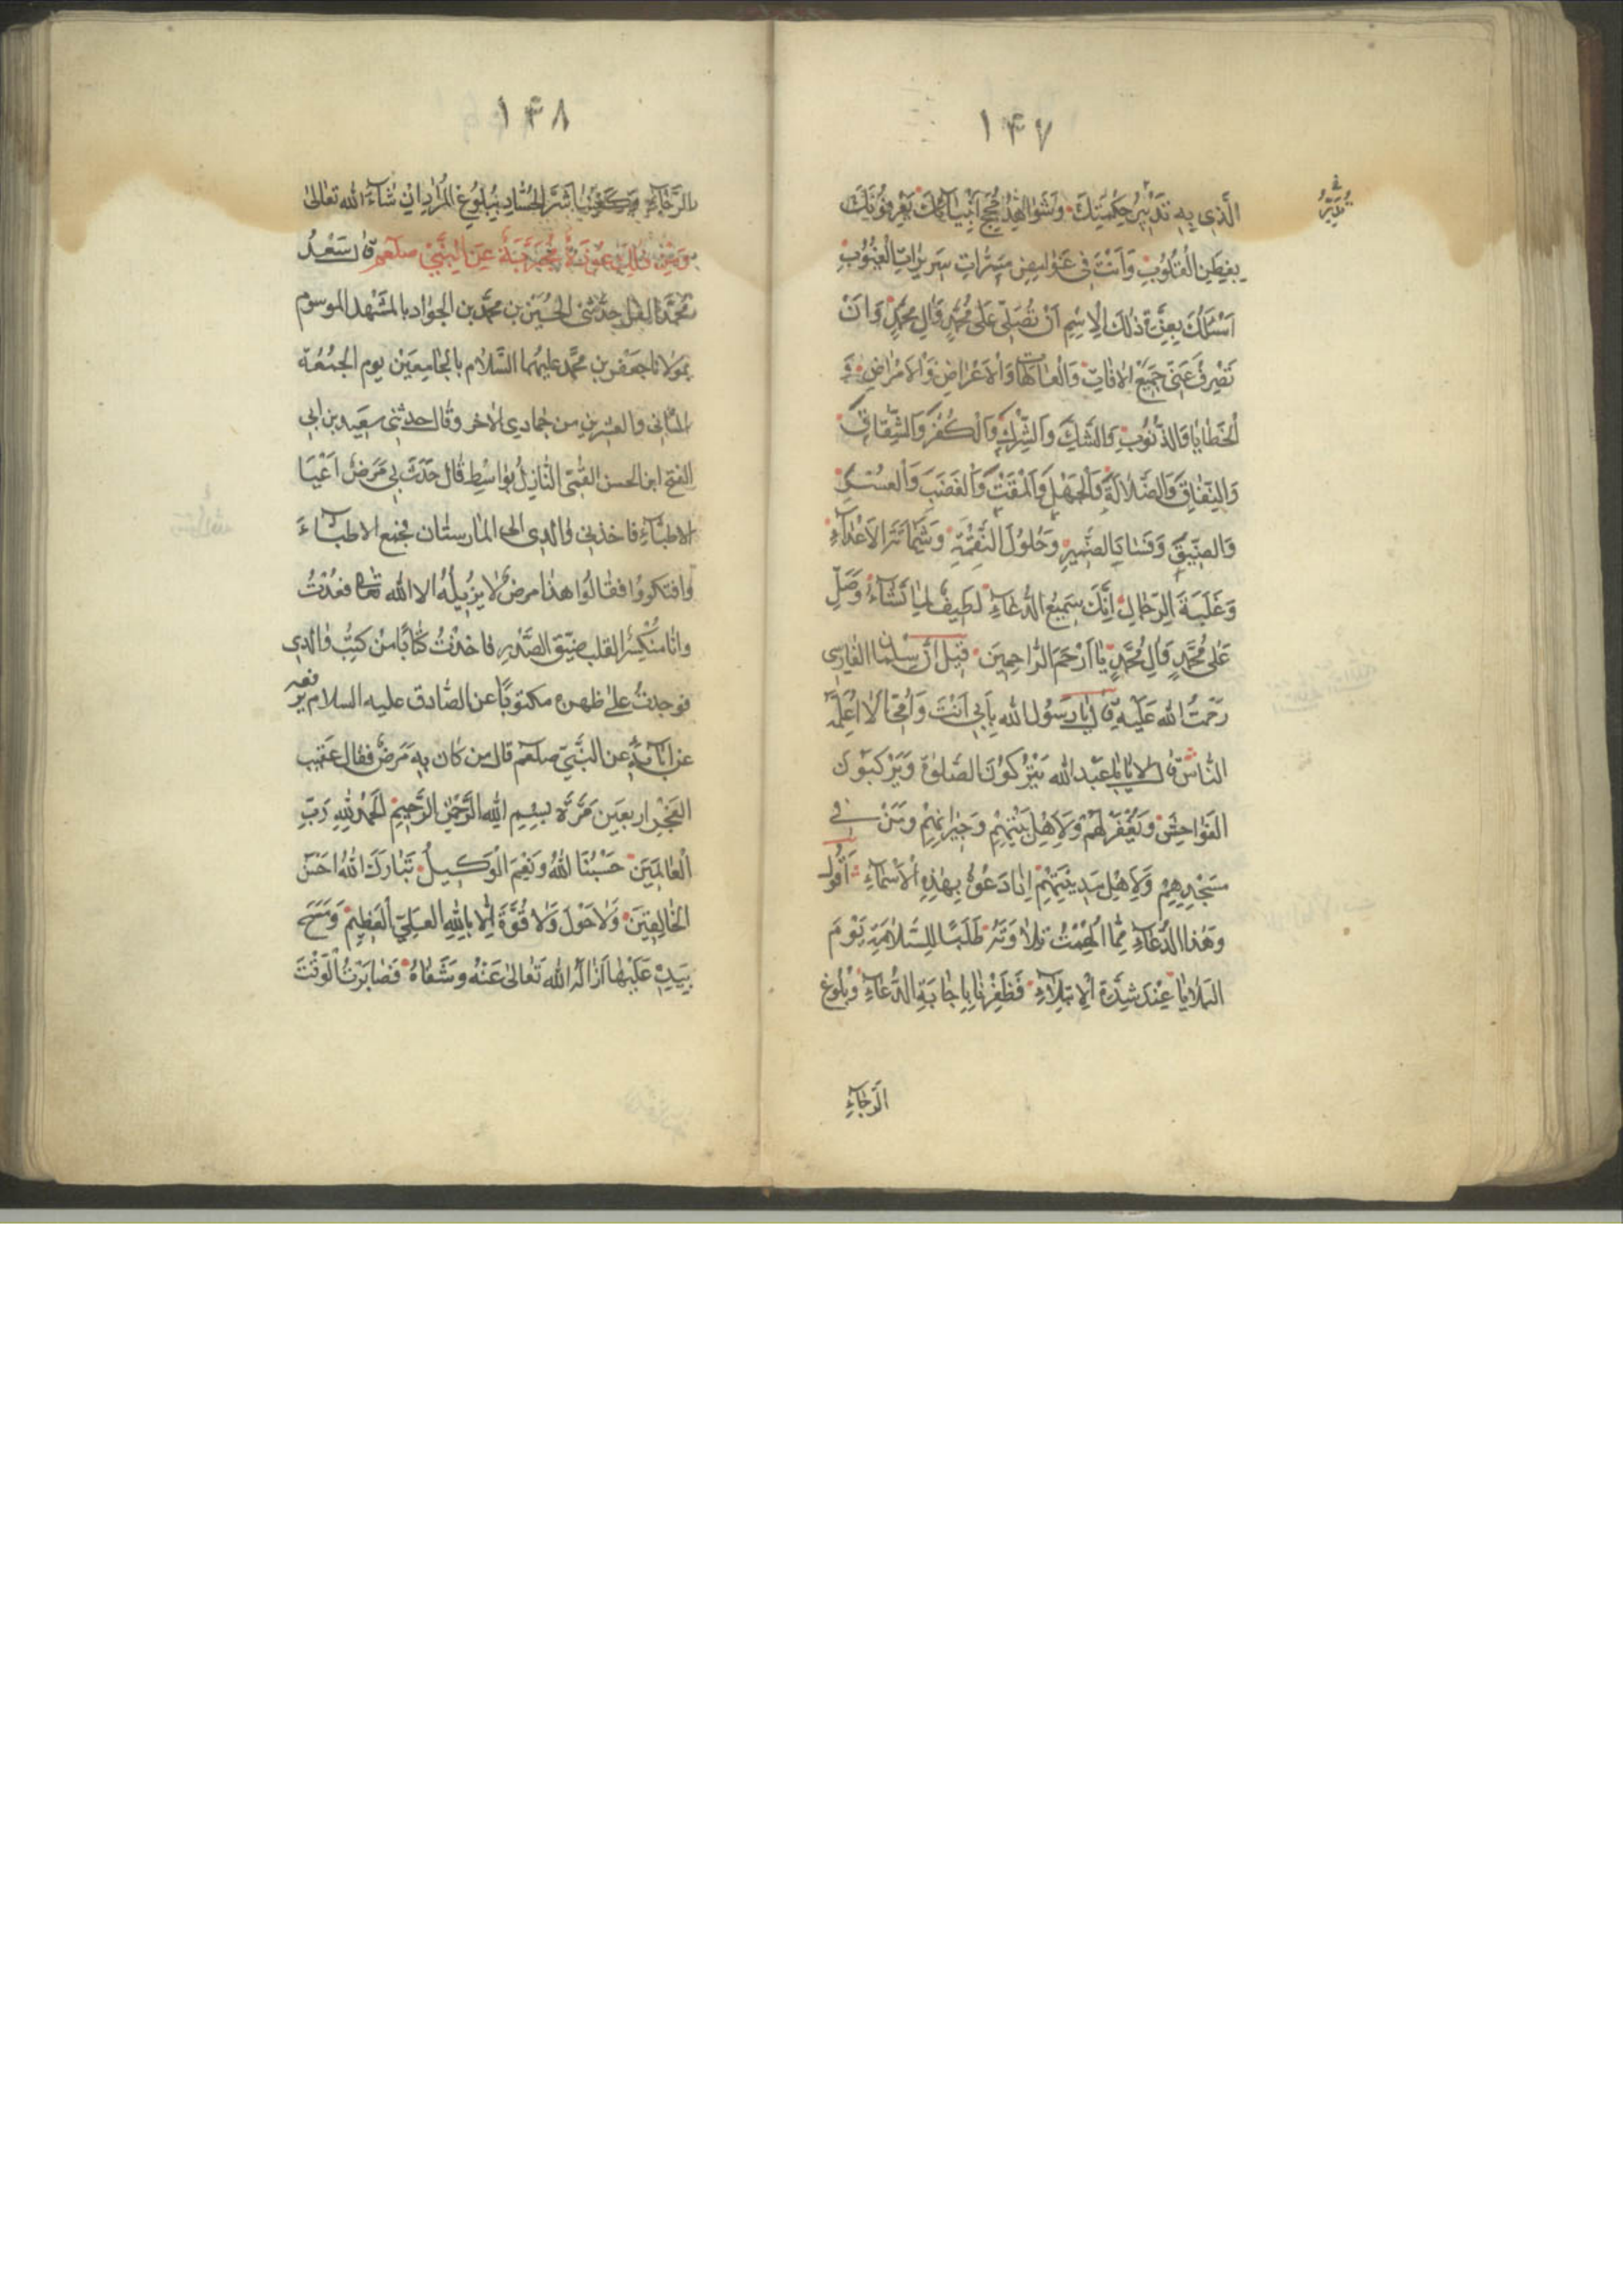 ١٤٧
الَّذِي بِهِ تَدْبِيرُ حِكْمَتِكَ وَشَوَاهِدُ حُجَجِ أَنْبِيَائِكَ يَعْرِفُونَكَ
بِفِطَنِ الْقُلُوبِ وَأَنْتَ فِي غَوَامِضِ مُسَرَّاتِ سَرِيرَاتِ الْغُيُوبِ
أَسْئَلُكَ بِعِزَّةِ ذٰلِكَ الْاِسْمِ أَنْ تُصَلِّيَ عَلَى مُحَمَّدٍ وَآلِ مُحَمَّدٍ وَأَنْ
تَصْرِفَ عَنِّي جَمِيعَ الْاٰفَاتِ وَالْعَاهَاتِ وَالْاَعْرَاضِ وَالْاَمْرَاضِ وَ
الْخَطَايَا وَالذُّنُوبِ وَالشَّكِّ وَالشِّرْكِ وَالْكُفْرِ وَالشِّقَاقِ
وَالنِّفَاقِ وَالضَّلَالَةِ وَالْجَهْلِ وَالْمَقْتِ وَالْغَضَبِ وَالْعُسْرِ
وَالضِّيقِ وَفَسَادِ الضَّمِيرِ وَحُلُولِ النِّقْمَةِ وَشَمَاتَةِ الْاَعْدَاءِ
وَغَلَبَةِ الرِّجَالِ اِنَّكَ سَمِيعُ الدُّعَاءِ لَطِيفٌ لِمَا تَشَاءُ وَصَلِّ
عَلَى مُحَمَّدٍ وَآلِ مُحَمَّدٍ يَا اَرْحَمَ الرَّاحِمِينَ قِيلَ اَنَّ سلمان الفارسي
رَحْمَتُ الله عَلَيْهِ قال يَا رَسُول الله بِاَبِي اَنْتَ وَاُمِّي اَلَا اُعَلِّمُهُ
النَّاسَ قال لا يا با عَبْد الله يَتْرُكُونَ الصَّلوةَ وَيَرْكَبُونَ
الْفَوَاحِشَ وَيُغْفَرُ لَهُمْ وَلِاَهْلِ بَيْتِهِمْ وَجِيرَانِهِمْ وَمَنْ فِي
مَسْجِدِهِمْ وَلِاَهْلِ مَدِينَتِهِمْ اِذَا دَعَوْا بِهٰذِهِ الْاَسْمَاءِ اَقُولُ
وَهٰذَا الدُّعَاءِ مِمَّا اُلْهِمْتُ تِلَاوَتَهُ طَلَبًا لِلسَّلَامَةِ يَوْمَ
الْبَلَايَا عِنْدَ شِدَّةِ الْاِبْتِلَاءِ فَظَفِرْنَا بِاِجَابَةِ الدُّعَاءِ وَبُلُوغِ
الرَّجَاءِ
١٤٨
الرَّجَاءِ وَكُفِينَا شَرَّ الْحُسَّادِ بِبُلُوغِ الْمُرَادِ اِنْ شَاءَ الله تَعَالٰى
وَمِنْ ذٰلِكَ عُوذَةٌ مُجَرَّبَةٌ عَنِ النَّبِيِّ صلعم قال سَعْدُ
حَدَّثَنِي الْحُسَيْنُ بن مُحَمَّد بن الجَوَاد بالمَشْهَد الموسوم
بمَوْلَانَا جَعْفَر بن مُحَمَّد عليهما السَّلَام بالجَامِعَيْن يوم الجُمُعَة
الثاني والعشرين من جُمَادي الاخر وقَال حدثني سعيد بن ابي
الفتح ابن الحسن القُمّي النَّازِلُ بوَاسِط قَال حَدَثَ بِي مَرَضٌ اَعْيَا
الاطبَّاء فاخذني وَالدي الى المَارستَان فجمع الاطبَّاءَ
وافتكروُا فقَالُوا هذَا مرضٌ لا يزُيلهُ الا الله تعالى فعُدْتُ
وانَا منُكسِرُ القلب ضيّق الصَّدْرِ فاخذتُ كتَابًا منْ كتبُ وَالدي
فوجدتُ على ظهره مكتوبًا عن الصَّادق عليه السلام يرفعه
عن اٰبآئه عن النَّبيّ صلعم قال من كان بهِ مَرَضٌ فقال عَقيب
الفَجْر اربعين مَرَّة بِسْمِ اللهِ الرَّحْمٰنِ الرَّحِيمِ الْحَمْدُ لِلّٰهِ رَبِّ
الْعَالَمِينَ حَسْبُنَا اللهُ وَنِعْمَ الْوَكِيلُ تَبَارَكَ اللهُ اَحْسَنُ
الْخَالِقِينَ وَلَا حَوْلَ وَلَا قُوَّةَ اِلَّا بِاللهِ الْعَلِيِّ الْعَظِيمِ وَمَسَحَ
بِيَدِهِ عَلَيْهَا اَزَالَهُ الله تَعَالٰى عَنْهُ وَشَفَاهُ فَصَابَرْتُ الْوَقْتَ